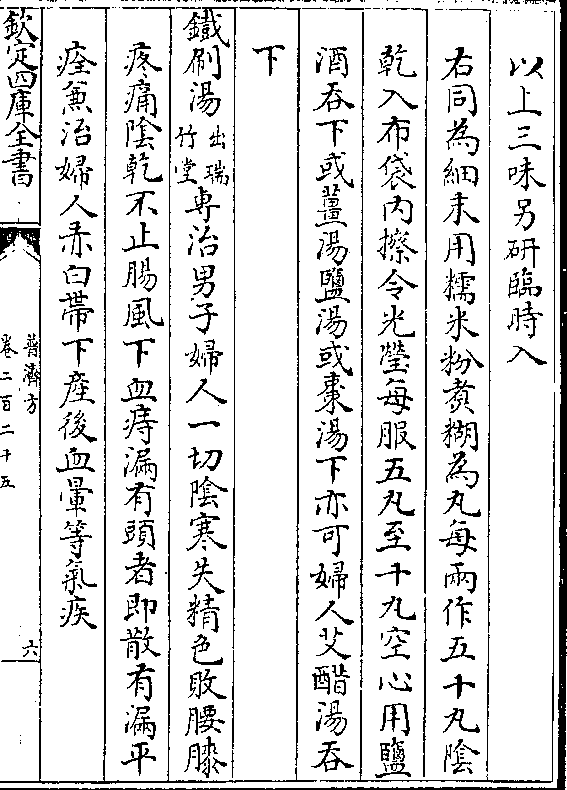 以上三味另研臨時入
右同為細末用糯米粉煑糊為丸每兩作五十丸陰
乾入布袋內擦令光瑩每服五丸至十丸空心用鹽
酒吞下或薑湯鹽湯或棗湯下亦可婦人艾醋湯吞
下
鐵刷湯出瑞竹堂專治男子婦人一切陰寒失精色敗腰膝
疼痛陰乾不止腸風下血痔漏有頭者即散有漏平
痊兼治婦人赤白帶下產後血暈等氣疾
欽定四庫全書
普濟方
卷二百二十五
六